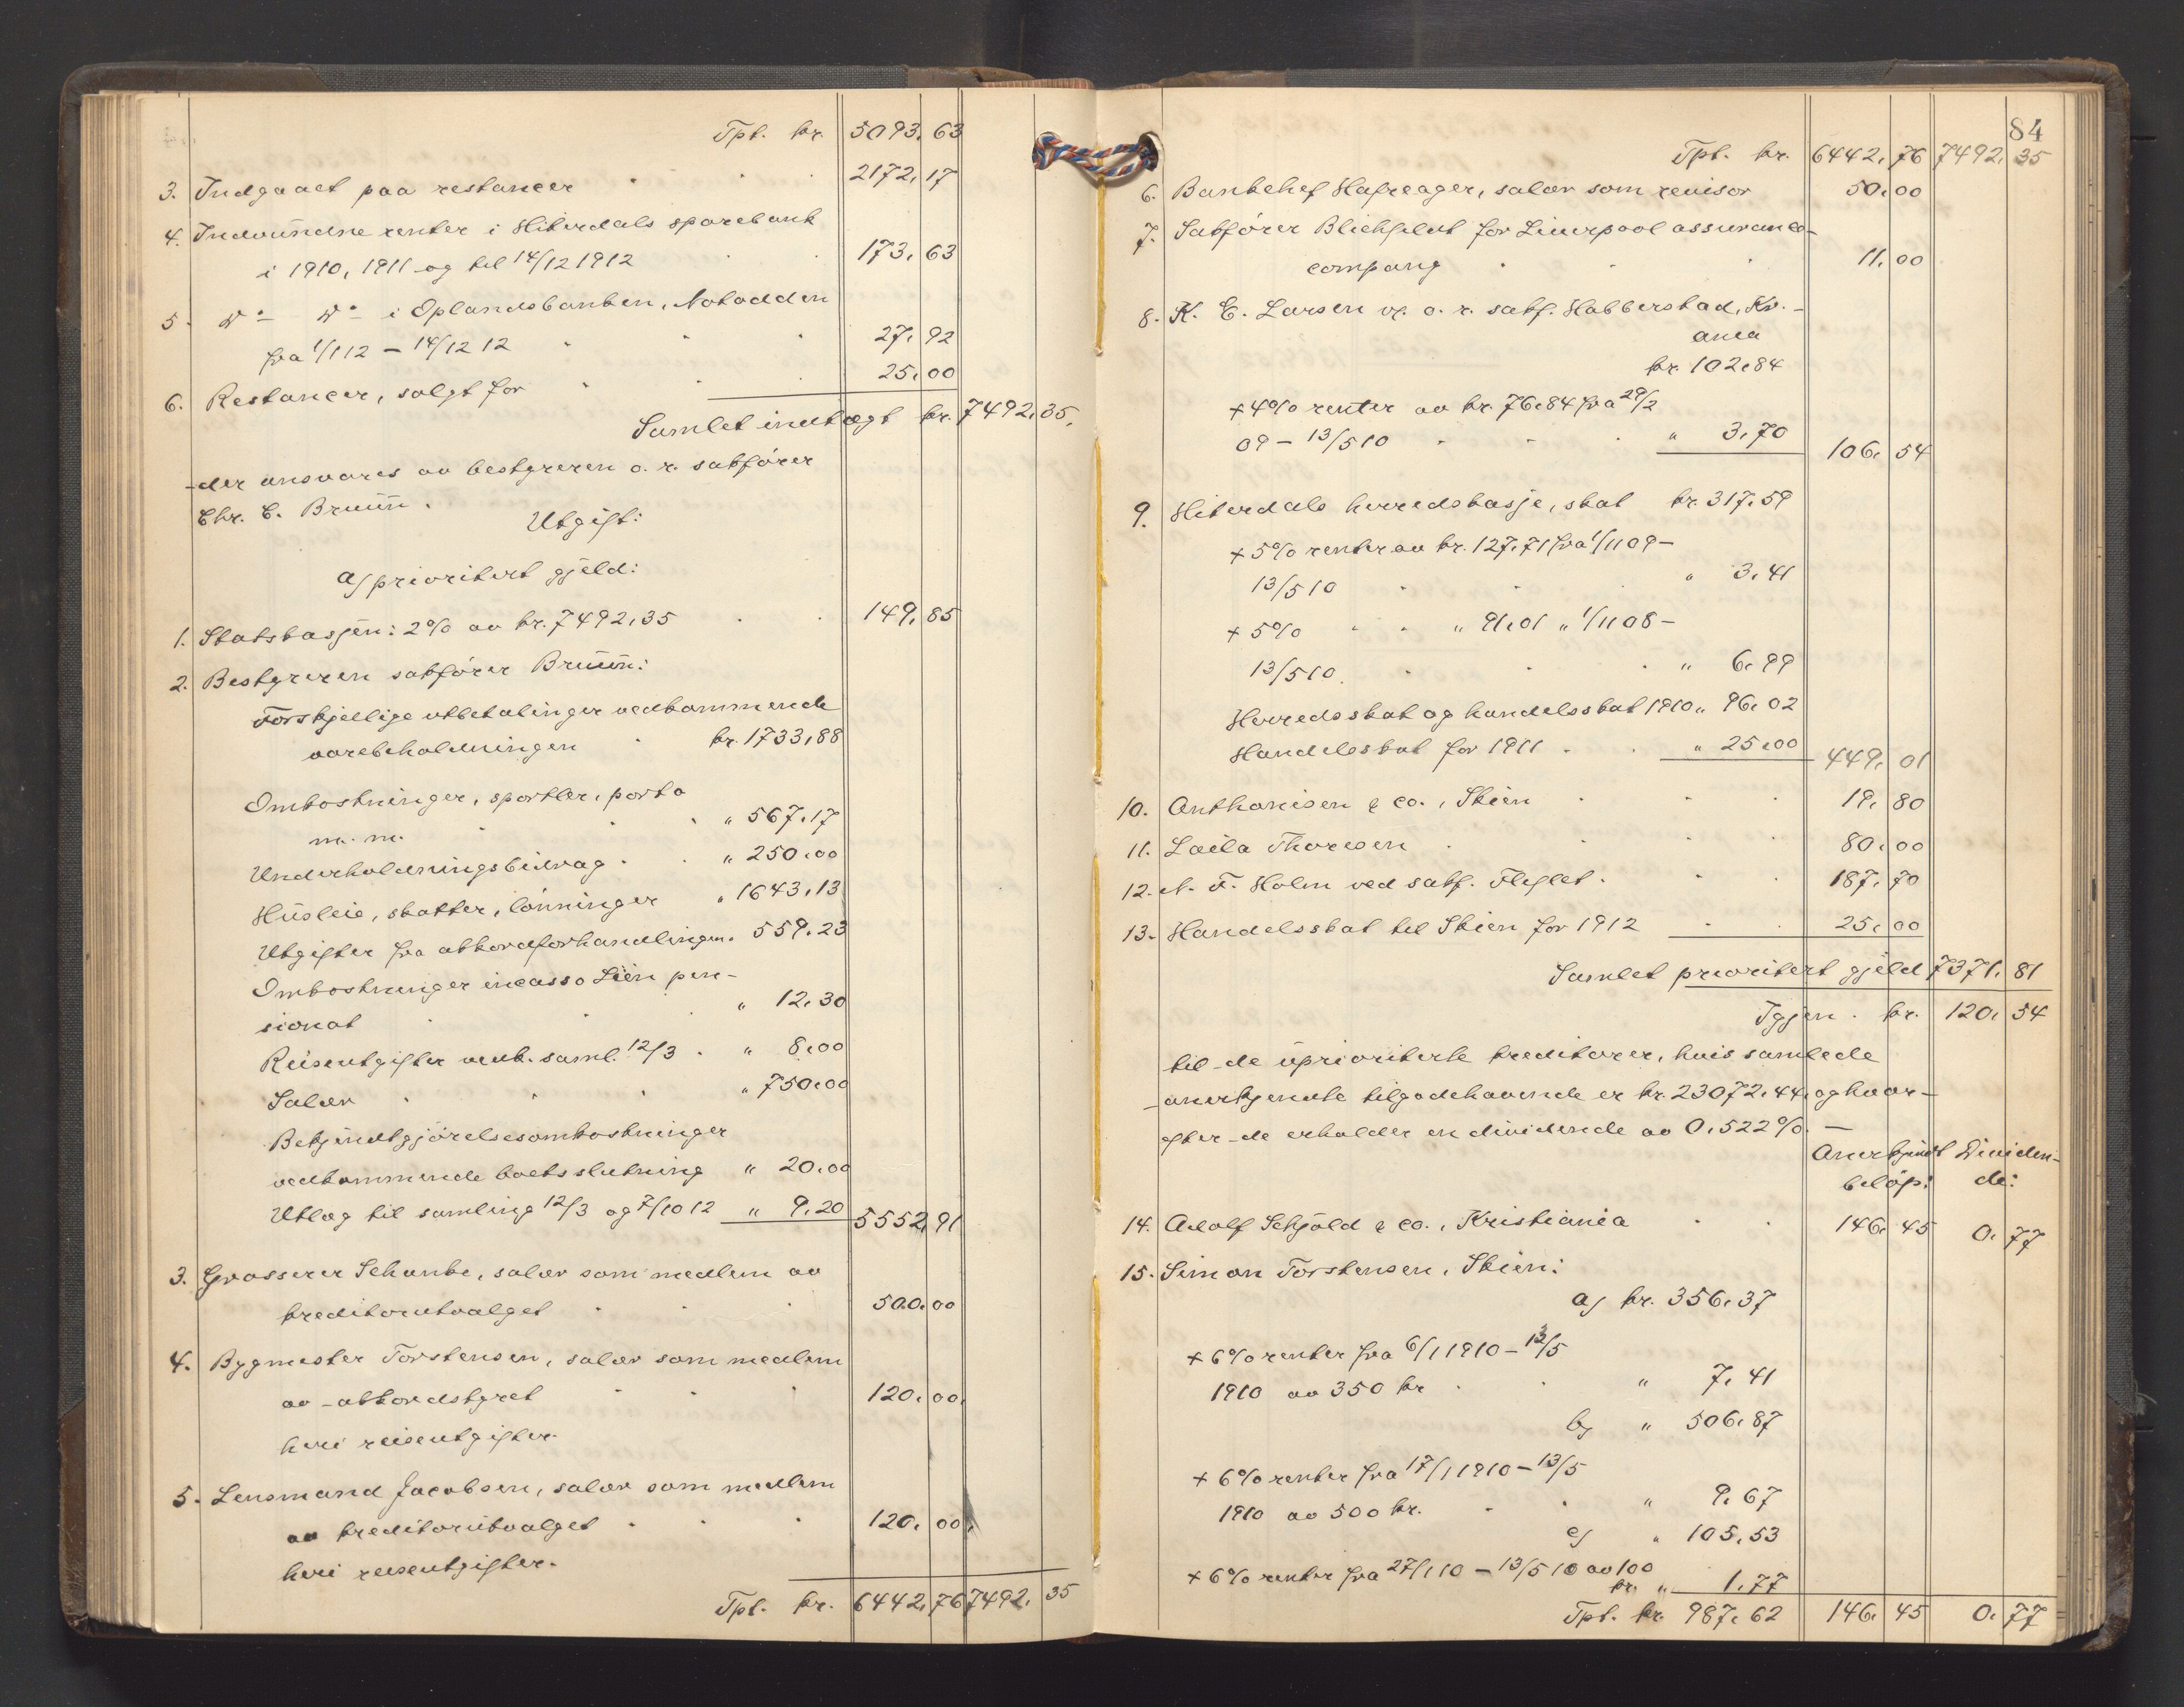 Tpt. kr. 5093,63
3. Indgaaet paa restancer 2172,17
4. Indvundne renter i Hiterdals sparebank
i 1910, 1911 og til 14/12 1912 173,63
5. Do Do i Oplandsbanken, Notodden
fra 1/1 12 – 14/12 12 27,92
6. Restancer, solgt for 25,00
Samlet indtægt kr. 7492,35,
der ansvares av bestyreren o. r. sakfører
Chr. C. Bruun.
Utgift:
a) prioritert gjeld:
1. Statskassen: 2% av kr. 7492,35 149,85
2. Bestyreren sakfører Bruun:
Forskjellige utbetalinger vedkommende
varebeholdningen kr. 1733,88
Omkostninger, sportler, porto
m. m. " 567,17
Underholdningsbidrag " 250,00
Husleie, skatter, lønninger " 1643,13
Utgifter fra akkordforhandlingen " 559,23
Omkostninger incasso Lien pen-
sionat " 12,30
Reiseutgifter vedk. saml. 12/3 " 8,00
Salær " 750,00
Bekjendtgjørelsesomkostninger
vedkommende boets slutning " 20,00
Utlæg til samling 12/3 og 7/10 12 " 9,20 5552,91
3. Grosserer Schanke, salær som medlem av
kreditorutvalget 500,00
4. Bygmester Torstensen, salær som medlem
av akkordstyret 120,00
heri reiseutgifter.
5. Lensmand Jacobsen, salær som medlem
av kreditorutvalget 120,00.
heri reiseutgifter.
Tpt. kr. 6442,76 7492,35
84
Tpt. kr. 6442,76 7492,35
6. Bankchef Hafreager, salær som revisor 50,00
7. Sakfører Blichfeldt for Liverpool assurance-
company 11,00
8. K. E. Larsen v. o. r. sakf. Habberstad, Kr.-
ania
kr. 102,84
+ 4% renter av kr. 76,84 fra 29/2
09 – 13/5 10 " 3,70 106,54
9. Hiterdals herredskasse, skat kr. 317,59
+ 5% renter av kr. 127,71 fra 1/11 09 –
13/5 10 " 3,41
+ 5% " " " 91,01 " 1/11 08 –
13/5 10 " 6,99
Herredsskat og handelsskat 1910 " 96,02
Handelsskat for 1911 " 25,00 449,01
10. Anthonisen & co., Skien 19,80
11. Laila Thoresen 80,00
12. A. F. Holm ved sakf. Fleglet 187,70
13. Handelsskat til Skien for 1912 25,00
Samlet prioritert gjeld 7371,81
Igjen kr. 120,54
til de uprioriterte kreditorer, hvis samlede
anerkjendte tilgodehavende er kr. 23072,44, og hvor-
efter de erholder en dividende av 0,522%. –
Anerkjendt Dividen-
beløp: de:
14. Adolf Schjøld & co., Kristiania 146,45 0,77
15. Simon Torstensen, Skien:
a) kr. 356,37
+ 6% renter fra 6/1 1910 – 13/5
1910 av 350 kr " 7,41
b) " 506,87
+ 6% renter fra 17/1 1910 – 13/5
1910 av 500 kr. " 9,67
c) " 105,53
+ 6% renter fra 27/1 10 – 13/5 10 av 100
kr. " 1,77
Tpt. kr 987,62 146,45 0,77